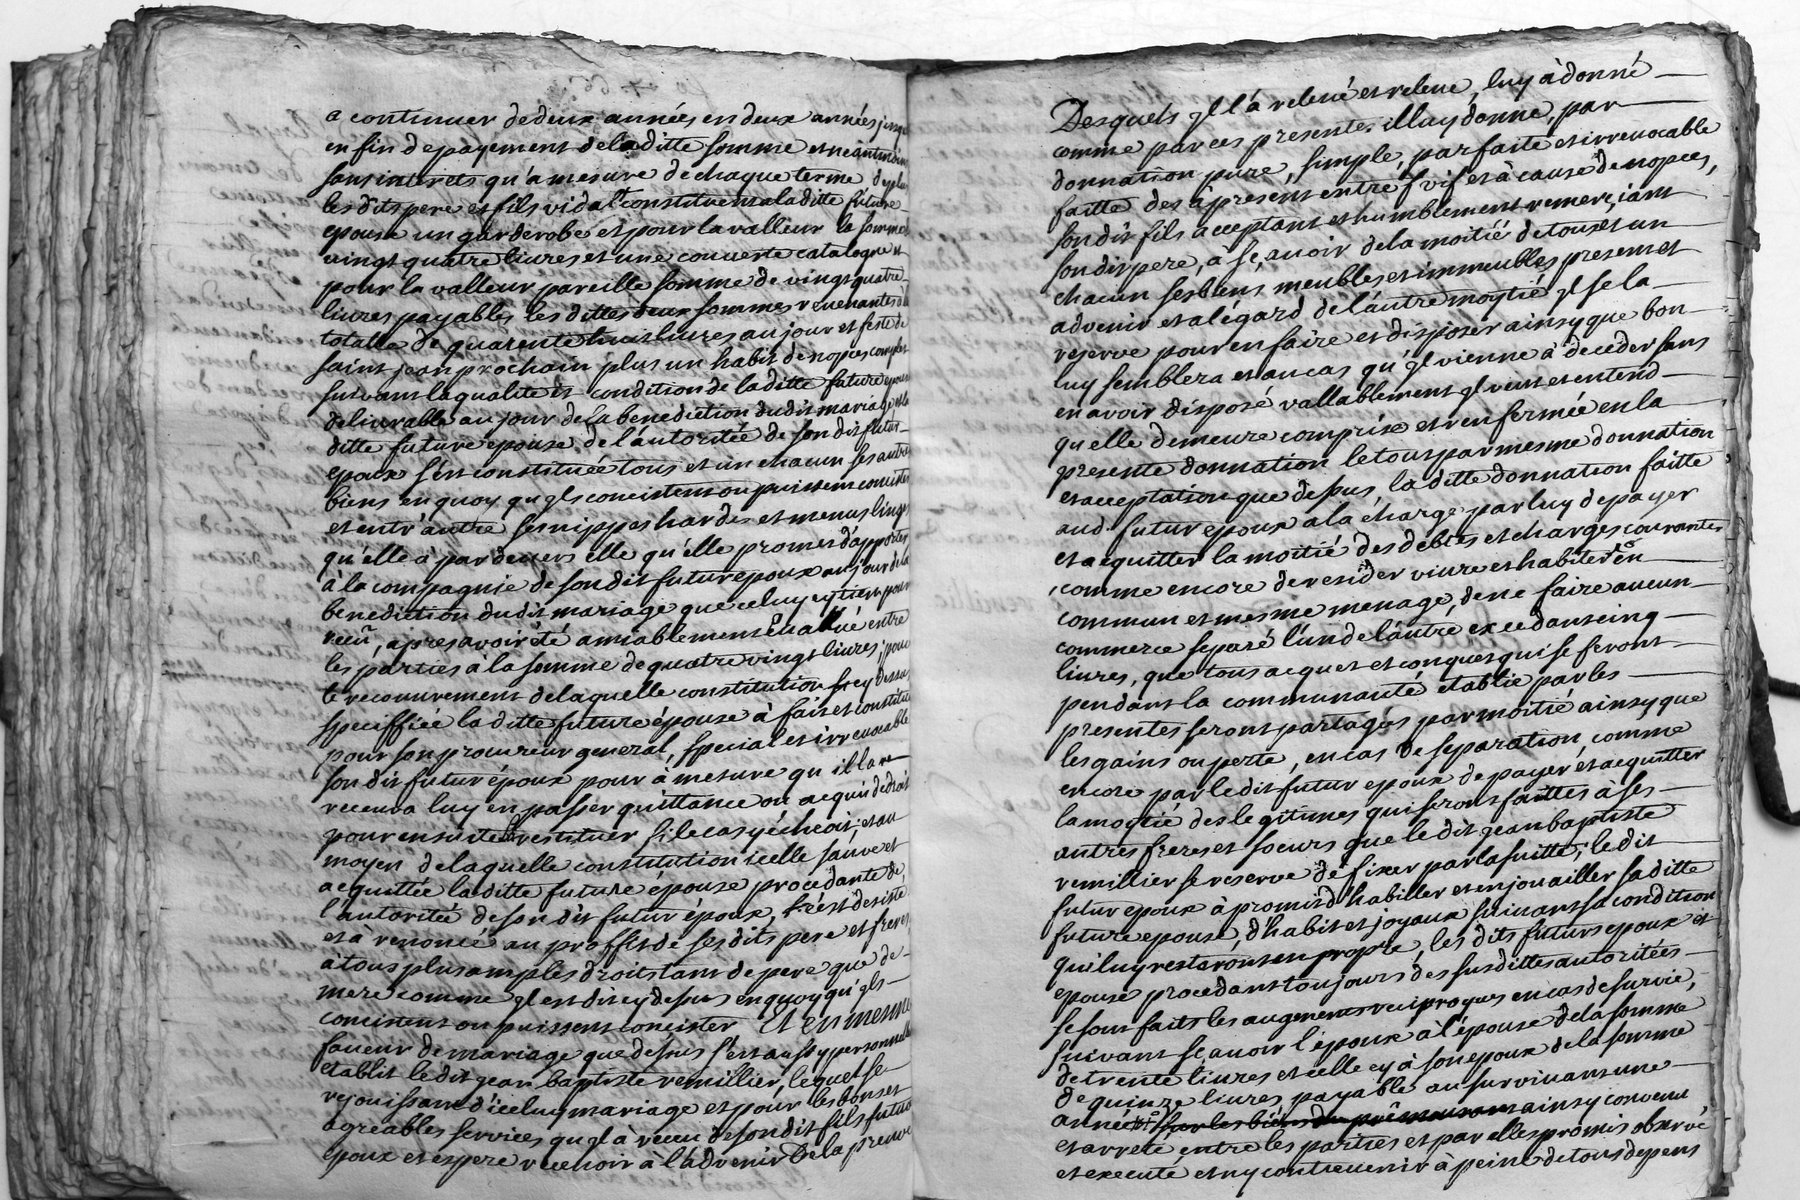 a continuer de deux années en deux années jusqu
en fin de payement de la ditte somme et neantmoins
sans interets qu'a mesure de chaque terme de plus
les dits pere et fils vidal constituent a la ditte future
epouse un garderobe et pour la valleur la somme
vingt quatre livres et une couverte catalogne et
pour la valleur pareille somme de vingt quatre
livres payables les dittes deux sommes revenantes
totalle de quarente huit livres au jour et feste de
saint jean prochain plus un habit de nopces complet
suivant la qualité et condition de la ditte future epouse
delivrable au jour de la benediction dudit mariage et la
ditte future epouse de l'autoritée de son dit futur
epoux s'est constituée tous et un chacun ses autres
biens en quoy qu'jls concistent ou puissent concister
et entr'autre ses nippes hardes et menus linges
qu'elle à pardevers elle qu'elle promet d'apporter
à la compagnie de son dit futur epoux au jour de la
benediction dudit mariage que celuy cy tient pour
receu, apres avoir été amiablement evalué entre
les parties a la somme de quatre vingt livres, pour
le recouvrement de laquelle constitution sy cy dessus
speciffiée la ditte future épouse à fait et constitué
pour son procureur general, special et irrevocable
son dit futur époux pour à mesure qu'il la
recevra luy en passer quittance ou acquit de droit
pour ensuite restituer si le cas y écheoit, et au
moyen de laquelle constitution icelle sauve et
acquittée la ditte future épouse procedante de
l'autorité de son dit futur époux, s'est desisté
et à renoncé au proffit de ses dits pere et freres
a tous plus amples droits tant de pere que de
mere comme jl est dit cy dessus en quoy qu'jls
concistent ou puissent concister Et en mesme
faveur de mariage que dessus s'est aussy personnell
etablit le dit jean baptiste remillier, lequel se
rejouissant d'iceluy mariage et pour les bons et
agreables services qu'jl à receu de son dit fils futur
epoux et espere recevoir à l'advenir de la preuve
Desquels jl l'à relevé et releve, luy à donné
comme par ces presentes il luy donne, par
donnation pure, simple, parfaite et irrevocable
faitte des à present entre vif et à cause de nopces,
son dit fils acceptant et humblement remerciant
son dit pere, à sçavoir de la moitié de tous et un
chacun ses biens meubles et immeubles present et
advenir et a légard de l'autre moytié jl se la
reserve pour en faire et disposer ainsy que bon
luy semblera et au cas qu'jl vienne à deceder sans
en avoir disposé vallablement jl veut et entend
qu elle demeure comprise et renfermée en la
presente donnation le tout par mesme donnation
et acceptation que dessus, la ditte donnation faitte
aud futur epoux a la charge par luy de payer
et acquitter la moitié des debtes et charges courantes
comme encore de resider vivre et habiter en
commun et mesme menage, de ne faire aucun
commerce separé l'un de l'autre excedant cinq
livres, que tous acquet et conquet qui se feront
pendant la communauté etablie par les
presentes seront partagés par moitié ainsy que
les gains ou perte, en cas de separation comme
encore par le dit futur epoux de payer et acquitter
la moytié des legitimes qui seront faittes à ses
autres freres et soeurs que le dit jean baptiste
remillier se reserve de fixer par la suitte, le dit
futur epoux à promis d'habiller et enjouailler sa ditte
future epouse, d'habit et joyaux suivant sa condition
qui luy resteront en propre, les dits futurs epoux et
epouse procedant toujours des susdittes autoritées
se sont faits les augments reciproques en cas de survie,
suivant sçavoir l'epoux à l'épouse de la somme
de trente livres et celle cy à son epoux de la somme
de quinze livres payable au survivant une
année ainsy convenu
et arreté entre les parties et par elles promis observé
et executé et n'y contrevenir à peine de tous depens